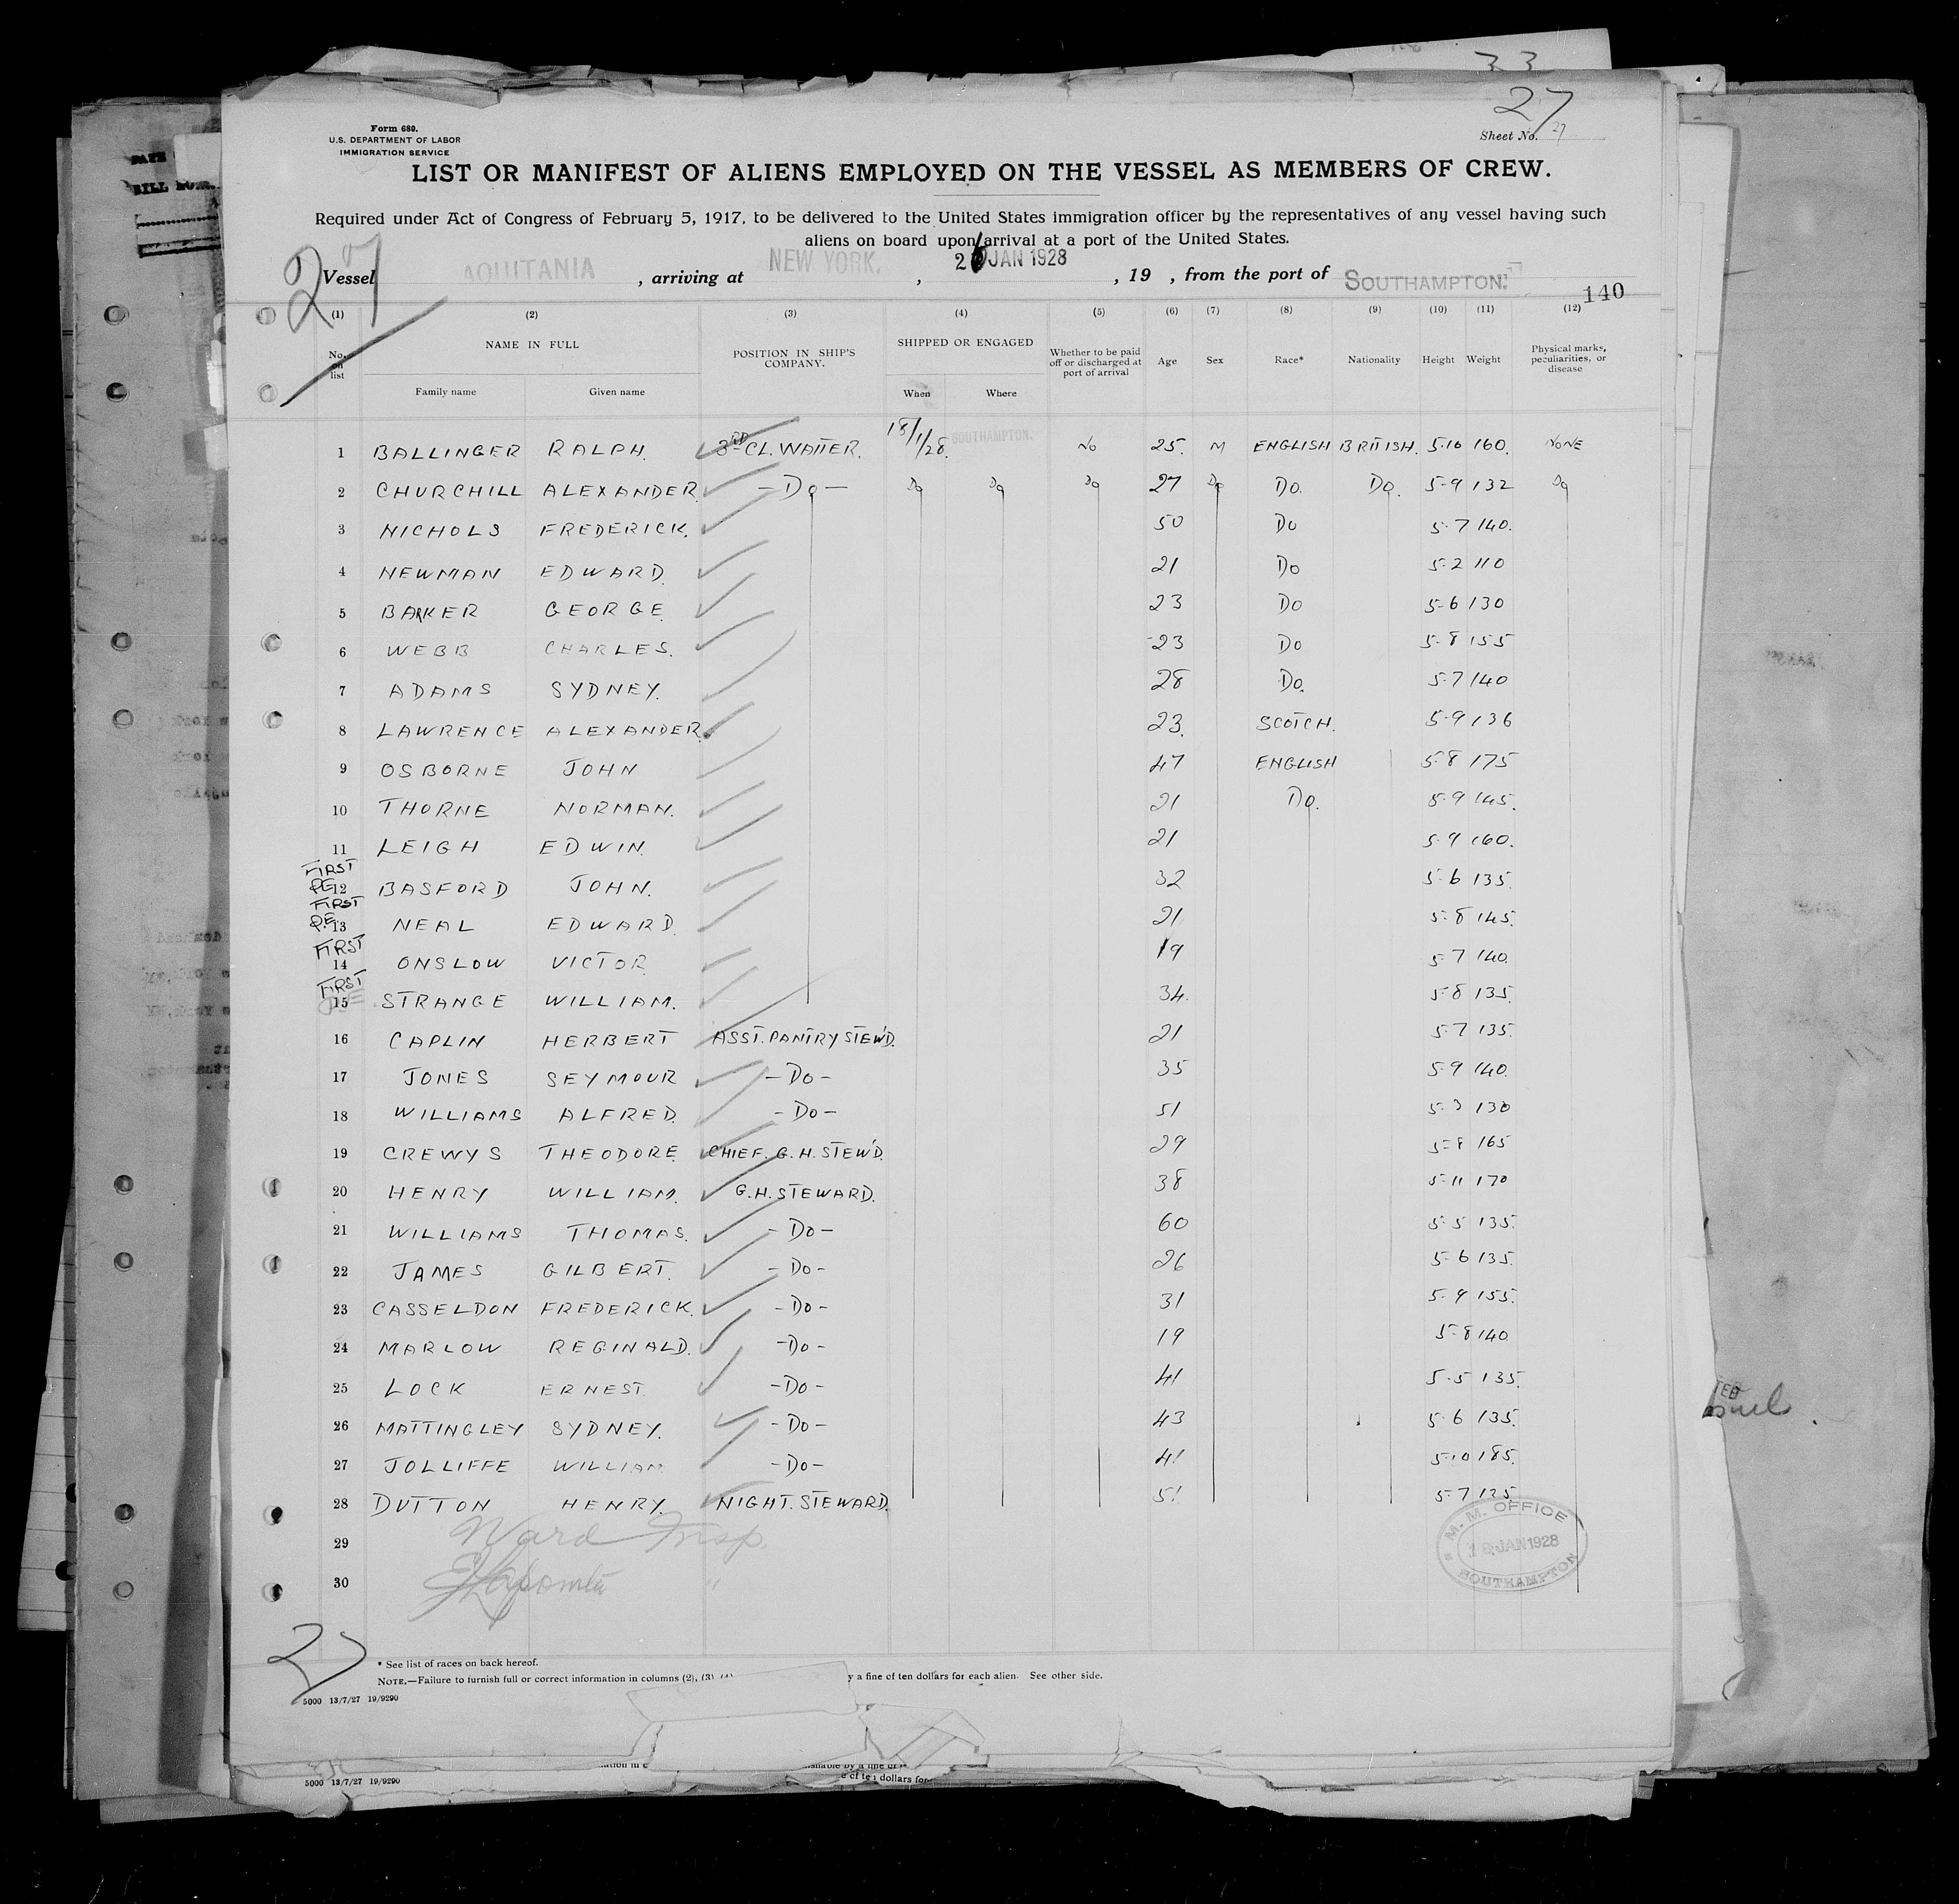 33
27
Form 680.
U.S. DEPARTMENT OF LABOR
IMMIGRATION SERVICE
Sheet No. 27
LIST OR MANIFEST OF ALIENS EMPLOYED ON THE VESSEL AS MEMBERS OF CREW.
Required under Act of Congress of February 5, 1917, to be delivered to the United States immigration officer by the representatives of any vessel having such
aliens on board upon arrival at a port of the United States.
27
Vessel AQUITANIA , arriving at NEW YORK. , 26 JAN 1928 , 19 , from the port of SOUTHAMPTON.
140
(1) (2) (3) (4) (5) (6) (7) (8) (9) (10) (11) (12)
No. on list NAME IN FULL Family name Given name POSITION IN SHIP'S COMPANY. SHIPPED OR ENGAGED When Where Whether to be paid off or discharged at port of arrival Age Sex Race* Nationality Height Weight Physical marks, peculiarities, or disease
1 BALLINGER RALPH. 3RD CL. WAITER. 18/1/28. SOUTHAMPTON. No 25. M ENGLISH BRITISH. 5.10 160. NONE
2 CHURCHILL ALEXANDER. -Do- Do Do Do 27 Do Do. Do. 5-9 132 Do
3 NICHOLS FREDERICK. 50 Do 5-7 140.
4 NEWMAN EDWARD. 21 Do 5-2 110
5 BARKER GEORGE. 23 Do 5-6 130
6 WEBB CHARLES. 23 Do 5-8 155
7 ADAMS SYDNEY. 28 Do. 5-7 140
8 LAWRENCE ALEXANDER. 23. SCOTCH. 5-9 136
9 OSBORNE JOHN 47 ENGLISH 5-8 175
10 THORNE NORMAN. 21 Do. 5-9 145.
11 LEIGH EDWIN. 21 5-9 160.
FIRST
P.E. 12 BASFORD JOHN. 32 5-6 135.
FIRST
P.E. 13 NEAL EDWARD. 21 5-8 145.
FIRST
14 ONSLOW VICTOR 19 5-7 140.
FIRST
15 STRANGE WILLIAM. 34. 5-8 135.
16 CAPLIN HERBERT ASST. PANTRY STEW'D. 21 5-7 135.
17 JONES SEYMOUR -Do- 35 5-9 140.
18 WILLIAMS ALFRED. -Do- 51 5-3 130
19 CREWYS THEODORE. CHIEF. G.H. STEW'D. 29 5-8 165
20 HENRY WILLIAM. G.H. STEWARD. 38 5-11 170
21 WILLIAMS THOMAS. -Do- 60 5-5 135.
22 JAMES GILBERT. -Do- 26 5-6 135.
23 CASSELDON FREDERICK. -Do- 31 5-9 155.
24 MARLOW REGINALD. -Do- 19 5-8 140
25 LOCK ERNEST. -Do- 41 5-5 135.
26 MATTINGLEY SYDNEY. -Do- 43 5-6 135.
27 JOLLIFFE WILLIAM -Do- 41 5-10 185.
28 DUTTON HENRY. NIGHT. STEWARD. 51 5-7
29 Ward Insp.
30 "
M. M. OFFICE
18 JAN 1928
SOUTHAMPTON
27
* See list of races on back hereof.
NOTE.—Failure to furnish full or correct information in columns (2), (3) y a fine of ten dollars for each alien. See other side.
5000 13/7/27 19/9290
5000 13/7/27 19/9290
e of ten dollars for